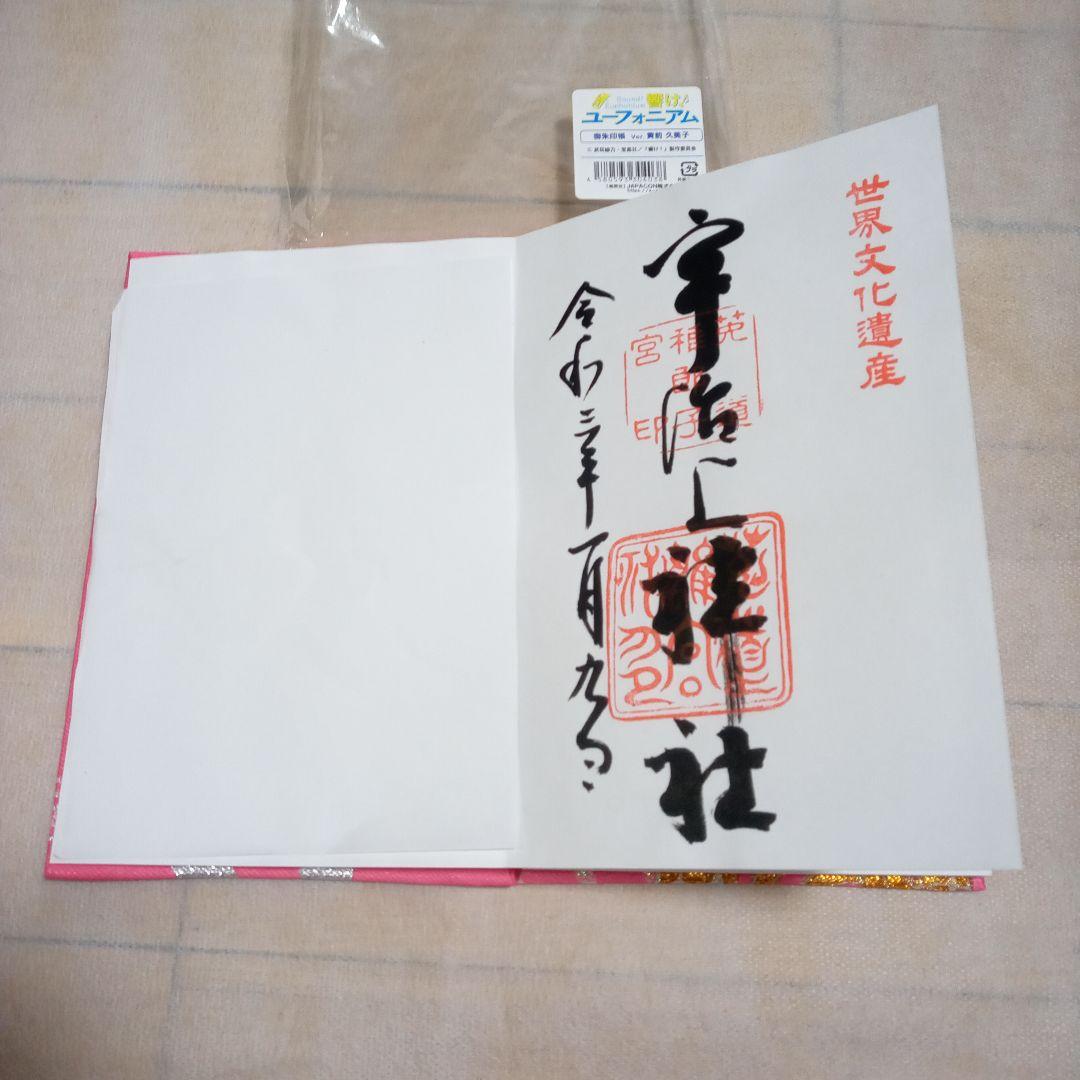 Sound! Euphonium
響け!
ユーフォニアム
御朱印帳 Ver. 黄前 久美子
© 武田綾乃・宝島社/『響け!』製作委員会
世界文化遺産
宇治上神社
莵道
稚郎子
宮印
令和三年一月九日